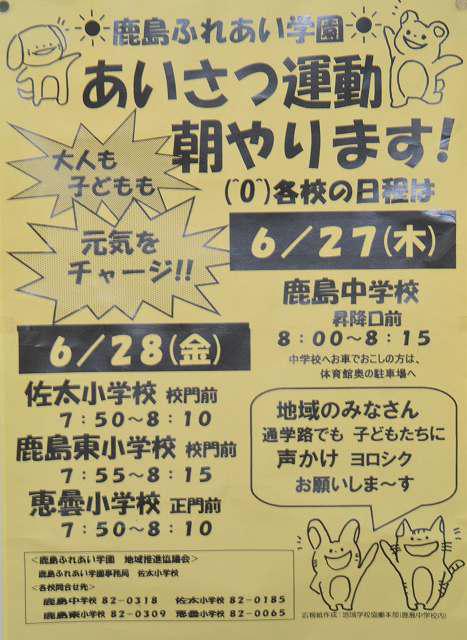 鹿島ふれあい学園
あいさつ運動
朝やります!
大人も
子どもも
(^0^)各校の日程は
元気を
チャージ!!
6/27(木)
鹿島中学校
昇降口前
8:00〜8:15
中学校へお車でおこしの方は、
体育館奥の駐車場へ
6/28(金)
佐太小学校 校門前
7:50〜8:10
鹿島東小学校 校門前
7:55〜8:15
恵曇小学校 正門前
7:50〜8:10
地域のみなさん
通学路でも 子どもたちに
声かけ ヨロシク
お願いしま〜す
<鹿島ふれあい学園 地域推進協議会>
鹿島ふれあい学園事務局 佐太小学校
<各校問合せ先>
鹿島中学校 82-0318 佐太小学校 82-0185
鹿島東小学校 82-0309 恵曇小学校 82-0065
広報紙作成:地域学校協働本部(鹿島中学校内)